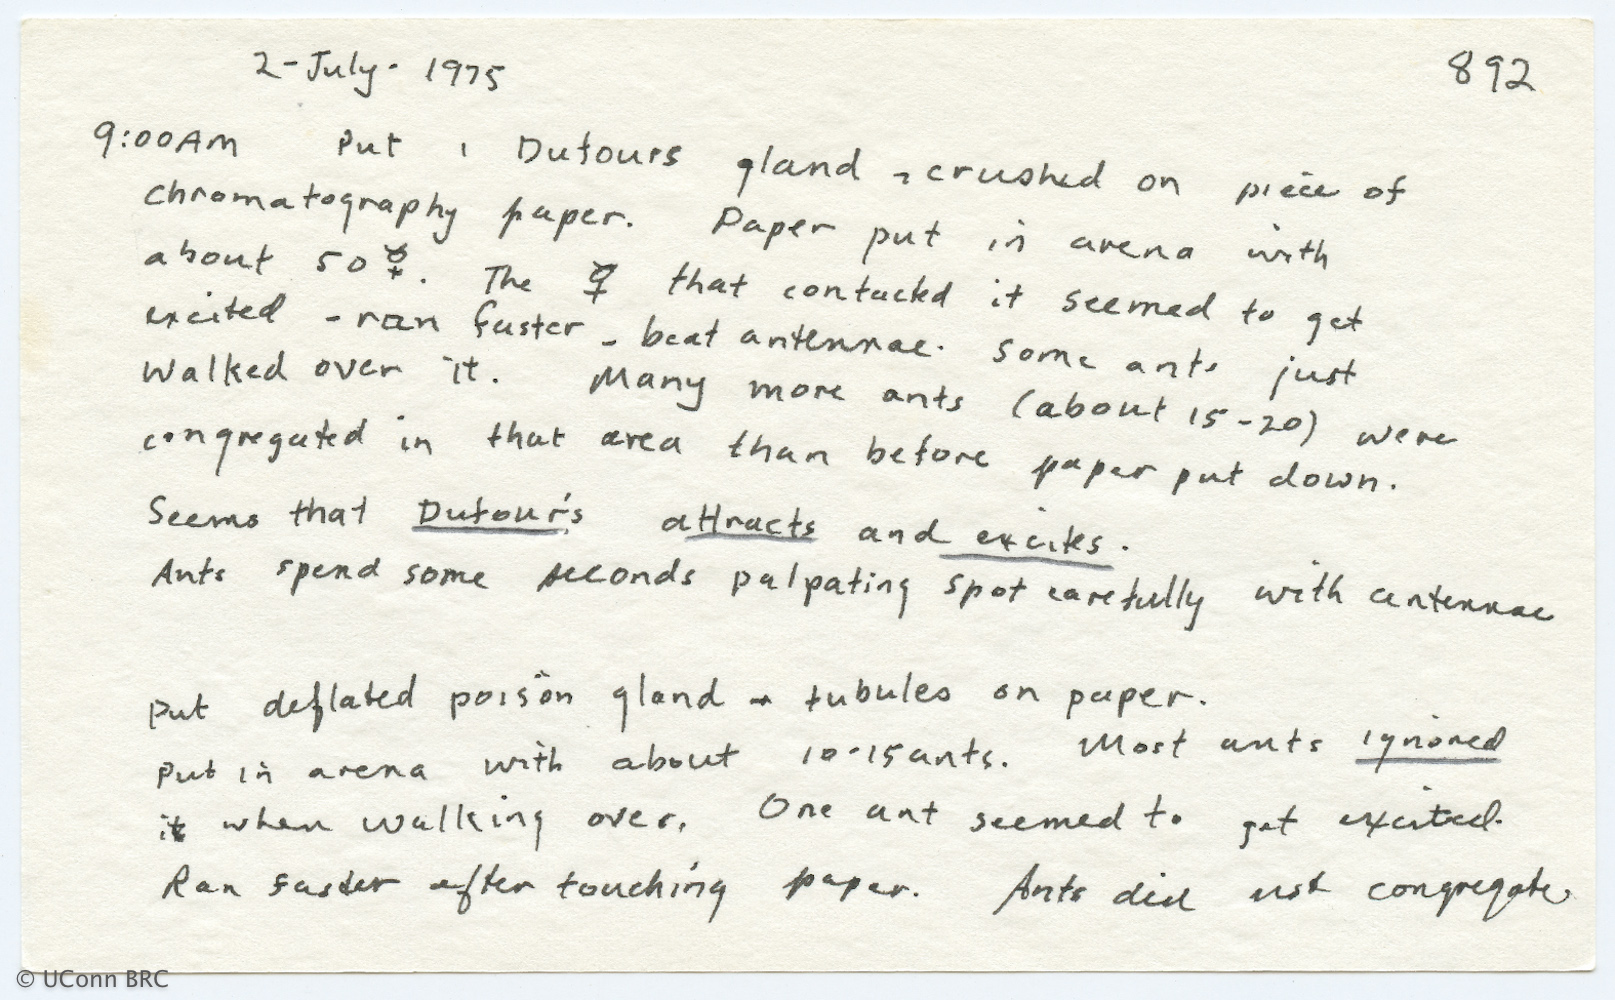 2-July-1975 892
9:00AM Put 1 Dufours gland, crushed on piece of
chromatography paper. Paper put in arena with
about 50 ☿. The ☿ that contacted it seemed to get
excited - ran faster - beat antennae. Some ants just
walked over it. Many more ants (about 15-20) were
congregated in that area than before paper put down.
Seems that Dufour's attracts and excites.
Ants spend some seconds palpating spot carefully with antennae
Put deflated poison gland + tubules on paper.
Put in arena with about 10-15 ants. Most ants ignored
it when walking over. One ant seemed to get excited.
Ran faster after touching paper. Ants did not congregate
© UConn BRC